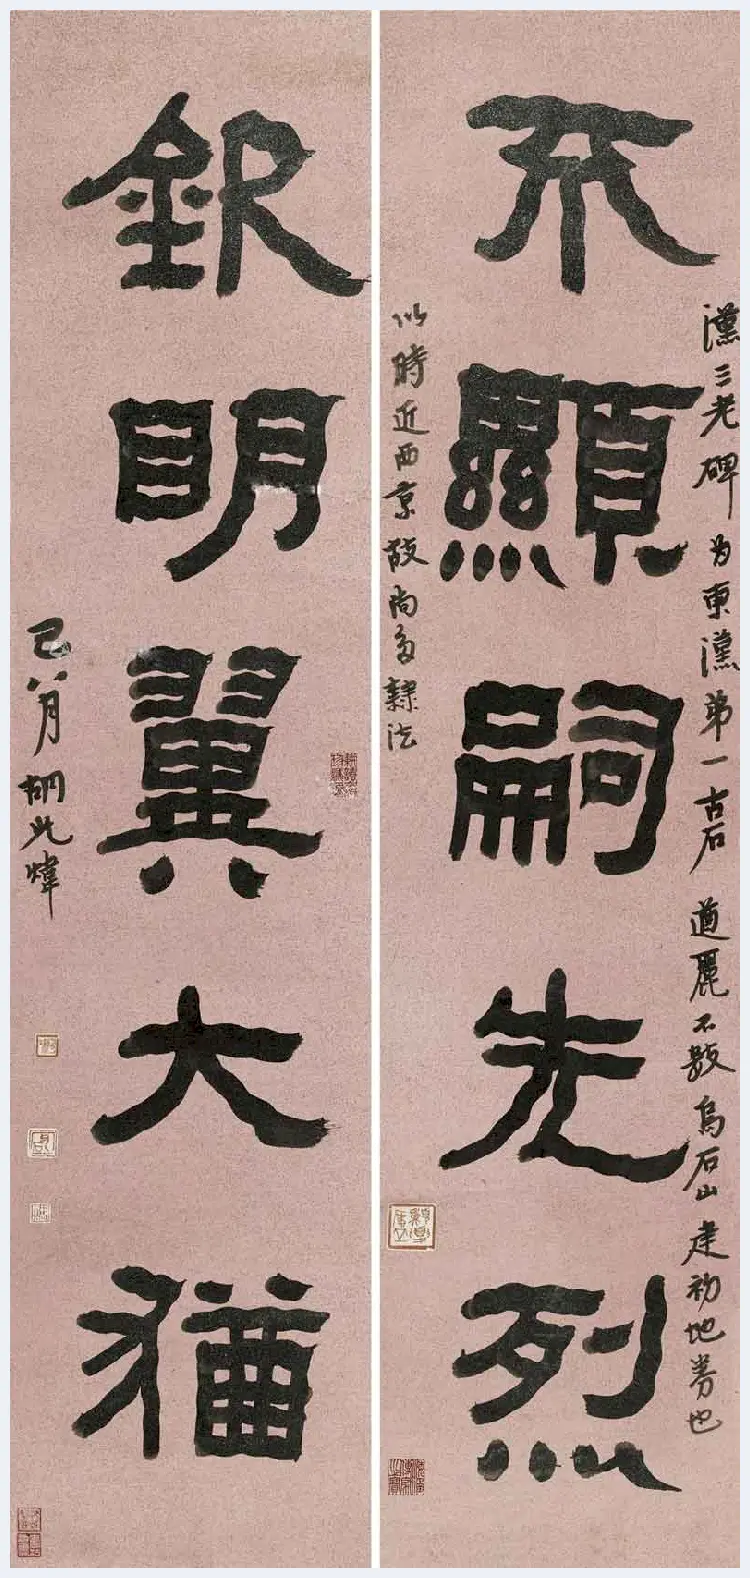 不顯嗣先烈
漢三老碑为東漢第一古石遒麗不數烏石山建初地券也
以時近西京故尚多隸法
欽明翼大猶
己八月胡光煒